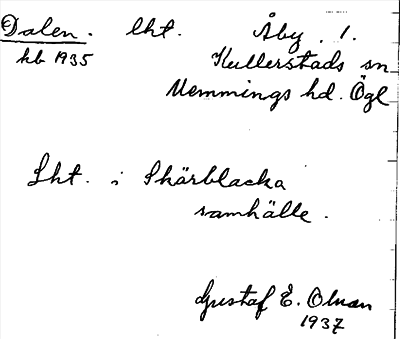 Dalen. lht. Åby. 1.
kb 1935 Kullerstads sn
Memmings hd. Ögl
Lht. i Skärblacka
samhälle.
Gustaf E. Olman
1937